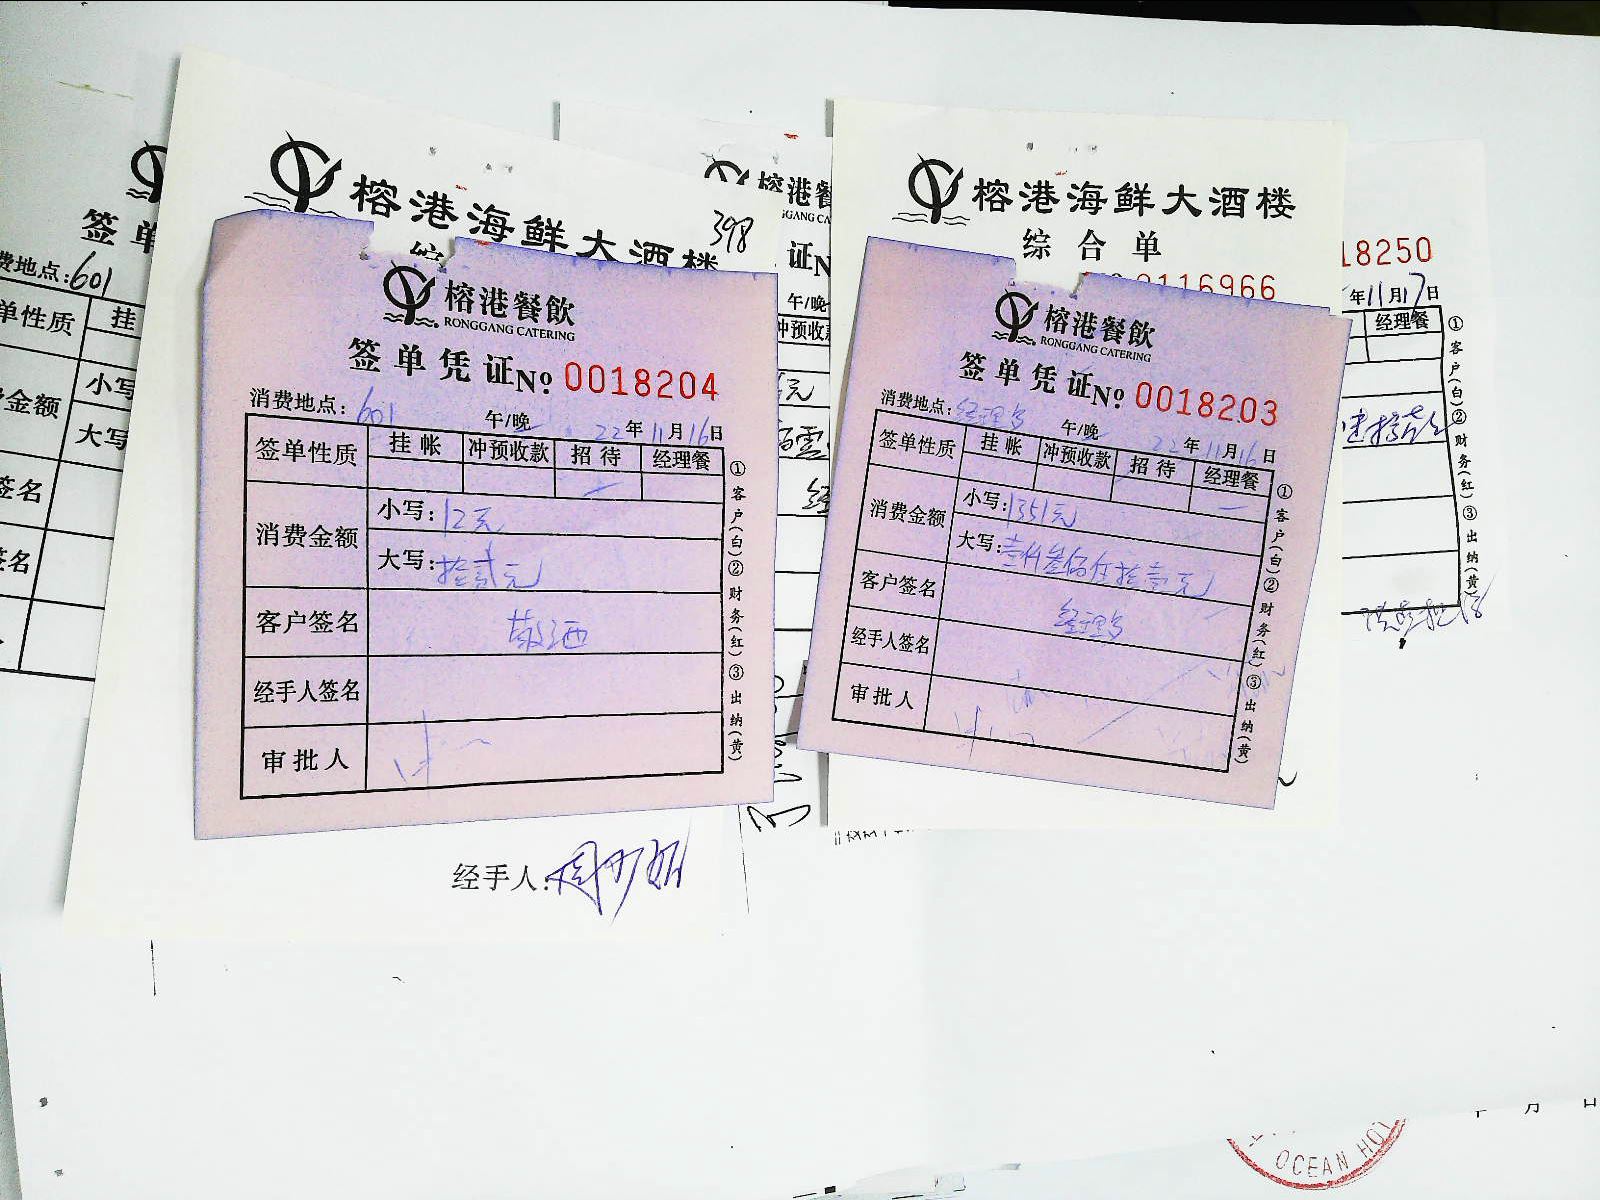 签单
费地点:601
单性质
挂
金额
小写
大写
签名
签名
榕港海鲜大酒楼
398
榕港餐飲
RONGGANG CATERING
签单凭证№ 0018204
消费地点: 601 午/晚 22年11月16日
签单性质 挂帐 冲预收款 招待 经理餐
消费金额 小写: 12元
大写: 拾贰元
客户签名 敬酒
经手人签名
审批人
①客户(白)②财务(红)③出纳(黄)
经手人:
榕港餐
GANG CA
证N
午/晚
冲预收
元
榕港海鲜大酒楼
综合单
0116966
榕港餐飲
RONGGANG CATERING
签单凭证№ 0018203
消费地点: 经理餐 午/晚 22年11月16日
签单性质 挂帐 冲预收款 招待 经理餐
消费金额 小写: 1351元
大写: 壹仟叁佰伍拾壹元
客户签名 经理餐
经手人签名
审批人
①客户(白)②财务(红)③出纳(黄)
18250
年11月17日
经理餐
①客户(白)②财务(红)③出纳(黄)
年 月 日
OCEAN HOT